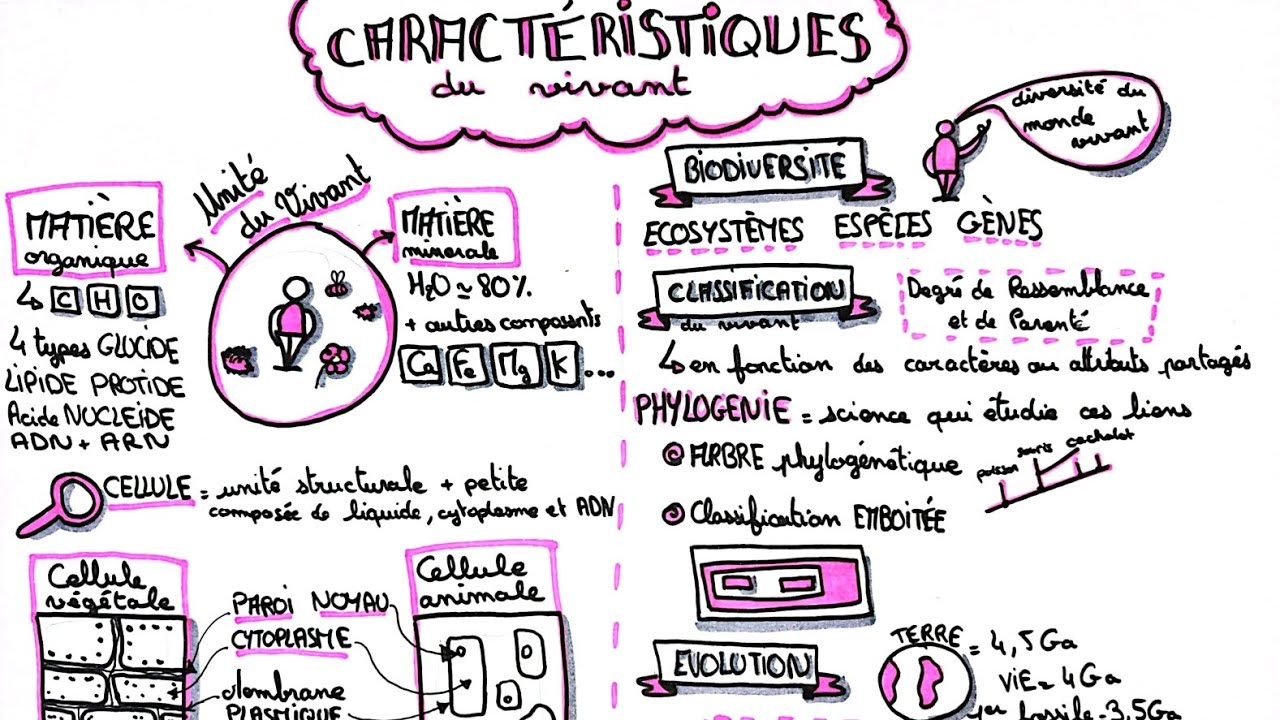 CARACTÉRISTIQUES
du vivant
Unité
du Vivant
MATIÈRE
organique
C H O
4 types GLUCIDE
LIPIDE PROTIDE
Acide NUCLEIDE
ADN + ARN
MATIÈRE
minerale
H2O ≃ 80%
+ autres composants
Ca Fe Mg K ...
CELLULE = unité structurale + petite
composée de liquide, cytoplasme et ADN
Cellule
végétale
PAROI NOYAU
CYTOPLASME
Membrane
PLASMIQUE
Cellule
animale
diversité du
monde
vivant
BIODIVERSITÉ
ECOSYSTÈMES ESPÈCES GÈNES
CLASSIFICATION
du vivant
Degré de Ressemblance
et de Parenté
en fonction des caractères ou attributs partagés
PHYLOGENIE = science qui étudie ces liens
ARBRE phylogénétique
poisson souris cachalot
Classification EMBOITÉE
EVOLUTION
TERRE = 4,5 Ga
VIE = 4 Ga
1er fossile = 3,5 Ga